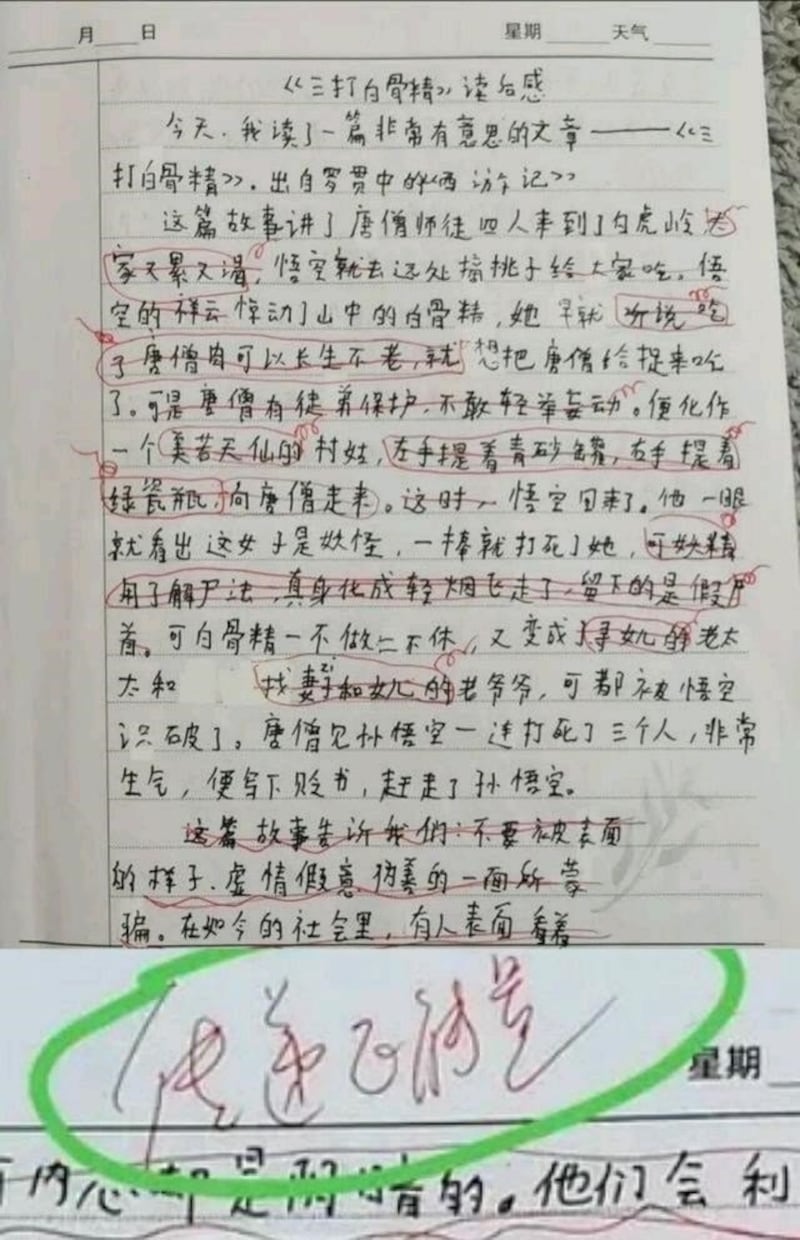 月 日 星期 天气
《三打白骨精》读后感
今天,我读了一篇非常有意思的文章——《三
打白骨精》,出自罗贯中的《西游记》
这篇故事讲了唐僧师徒四人来到了白虎岭,大
家又累又渴,悟空就去远处摘桃子给大家吃。悟
空的祥云惊动了山中的白骨精,她早就听说吃
了唐僧肉可以长生不老,就想把唐僧给捉来吃
了。可是唐僧有徒弟保护,不敢轻举妄动。便化作
一个美若天仙的村姑,左手提着青砂罐,右手提着
绿瓷瓶,向唐僧走来。这时,悟空回来了。他一眼
就看出这女子是妖怪,一棒就打死了她,可妖精
用了解尸法,真身化成轻烟飞走了,留下的是假尸
首。可白骨精一不做二不休,又变成了寻女儿的老太
太和 找妻子和女儿的老爷爷,可都被悟空
识破了。唐僧见孙悟空一连打死了三个人,非常
生气,便写下贬书,赶走了孙悟空。
这篇故事告诉我们:不要被表面
的样子、虚情假意伪善的一面所蒙
骗。在如今的社会里,有人表面看着
传递正能量
星期
内心却是阴暗的。他们会利